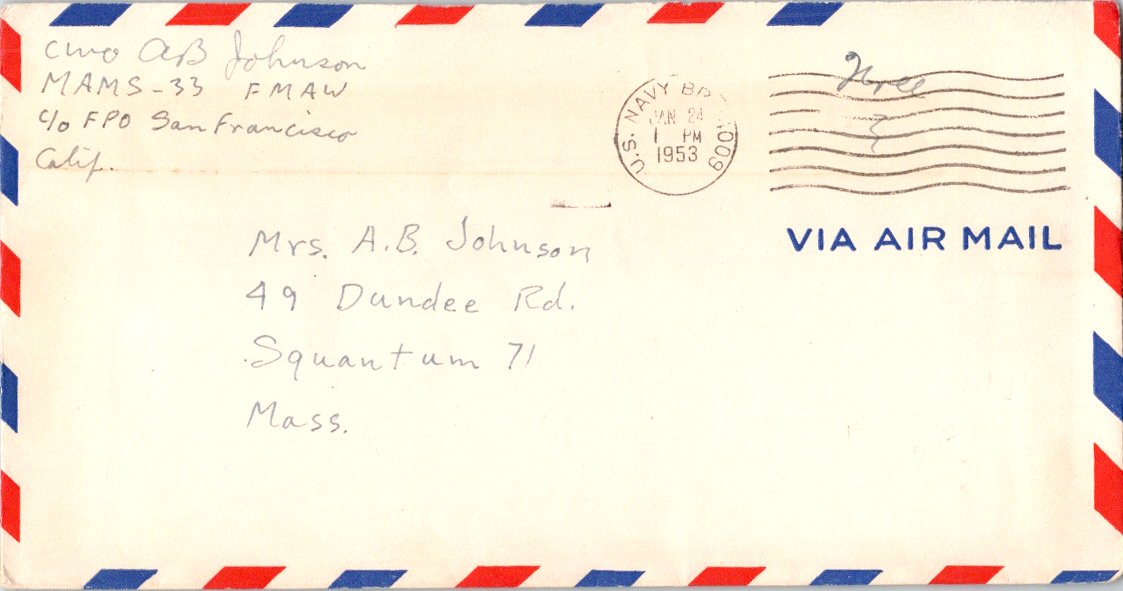 CWO AB Johnson
MAMS-33 FMAW
c/o FPO San Francisco
Calif.
U.S. NAVY BR. 14009
JAN 24
1 PM
1953
Free
VIA AIR MAIL
Mrs. A.B. Johnson
49 Dundee Rd.
Squantum 71
Mass.